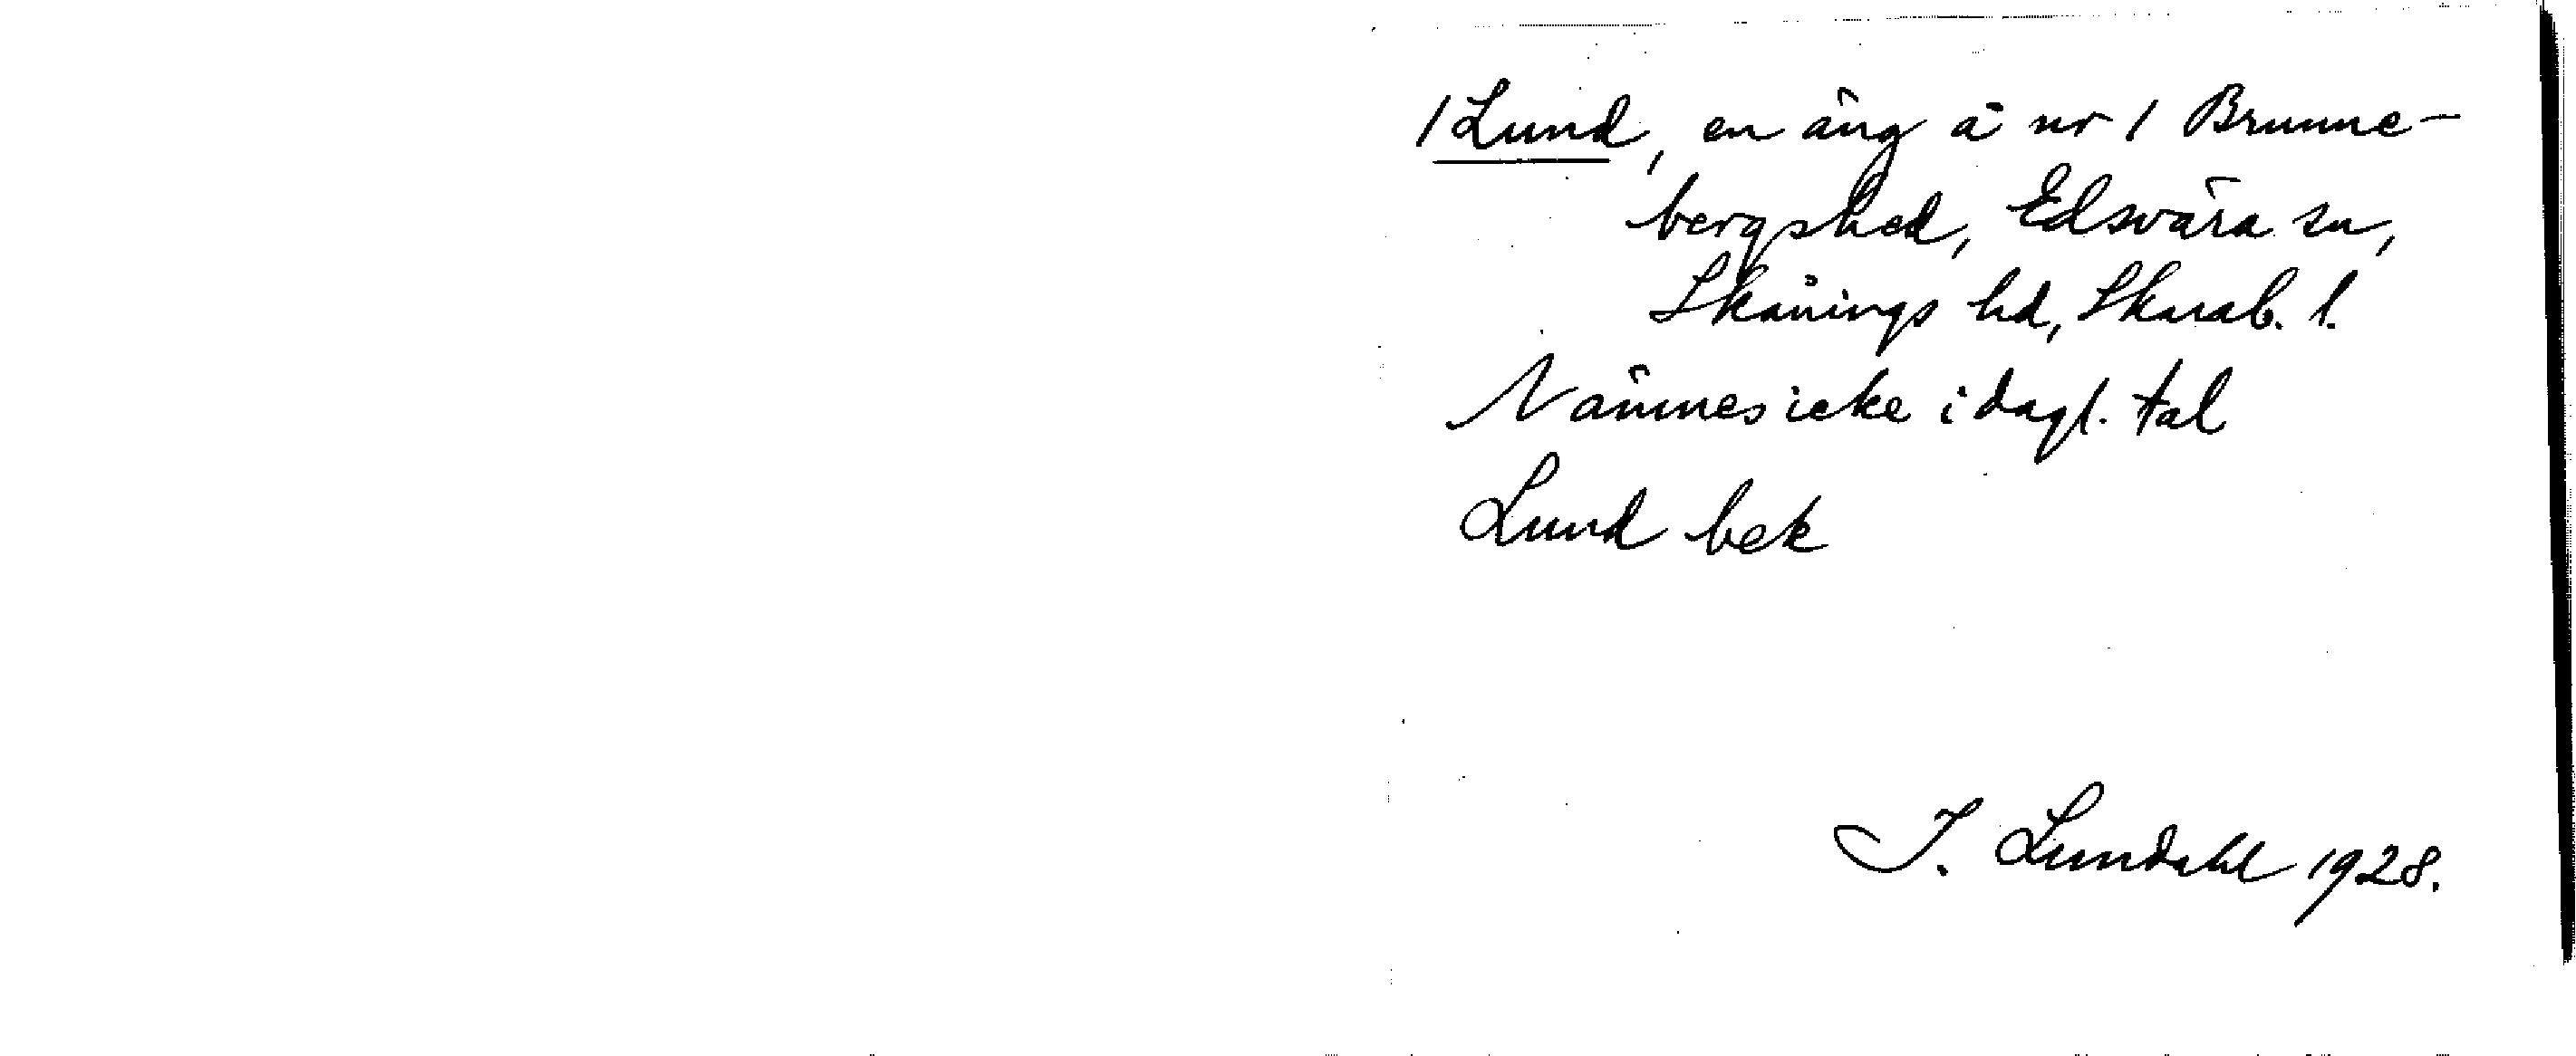 /Lund, en äng å nr 1 Brunne-
bergshed, Edsvära sn,
Skånings hd, Skarab. l.
Nämnes icke i dagl. tal
Lund bek
I. Lundahl 1928.